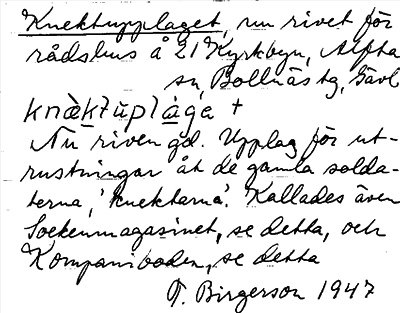 Knektupplaget, nu rivet för
rådshus å 21 Kyrkbyn, Alfta
sn, Bollnäs tg, Gävl
knæ̀ktùplága +
Nu riven gd. Upplag för ut-
rustningar åt de gamla solda-
terna, 'knektarna'. Kallades även
Sockenmagasinet, se detta, och
Kompaniboden, se detta
T. Birgerson 1947